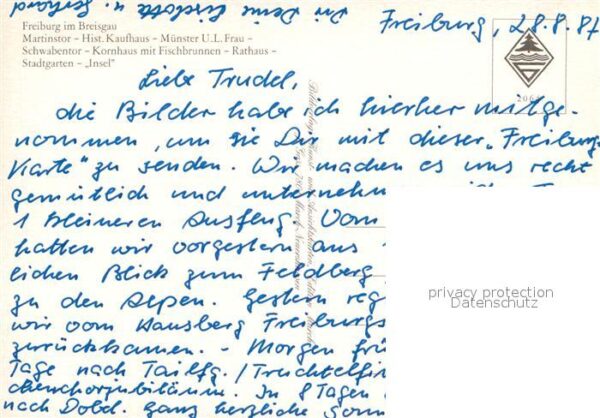 Dir Deine Liselotte u. Gerhard
Freiburg, 28.8.87
Freiburg im Breisgau
Martinstor – Hist. Kaufhaus – Münster U. L. Frau –
Schwabentor – Kornhaus mit Fischbrunnen – Rathaus –
Stadtgarten – „Insel"
Liebe Trudel,
die Bilder habe ich hierher mitge-
nommen, um sie Dir mit dieser „Freiburg
Karte" zu senden. Wir machen es uns recht
gemütlich und unternehm
1 kleineren Ausflug. Vom
hatten wir vorgestern aus
lichen Blick zum Feldberg
zu den Alpen. Gestern reg
wir vom Hausberg Freiburgs
zurückkamen. - Morgen frü
Tage nach Tailfg. / Truchtelfin
chenchorjubiläum. In 8 Tagen
nach Dobel. Ganz herzliche Son
privacy protection
Datenschutz